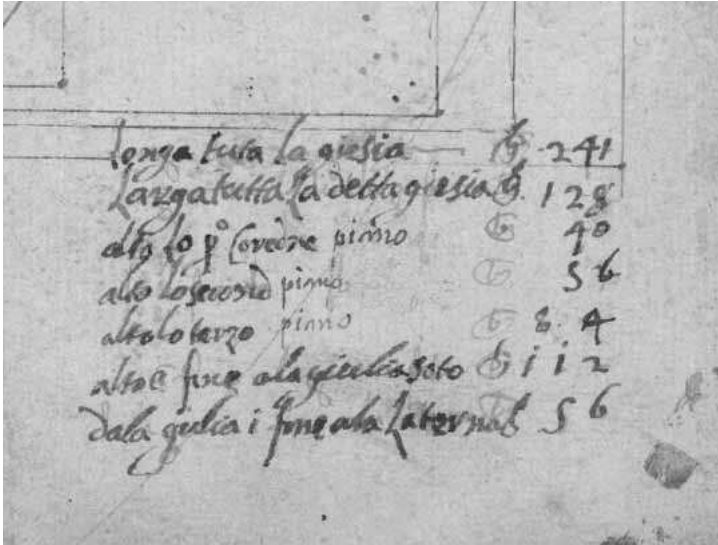 longa tuta la giesia 241
Larga tutta la detta giesia 128
alto lo p.º piano 40
alto lo second piano 56
alto lo terzo piano 8 4
alto fine ala giulia soto 112
dala giulia i fine ala Laterna 56